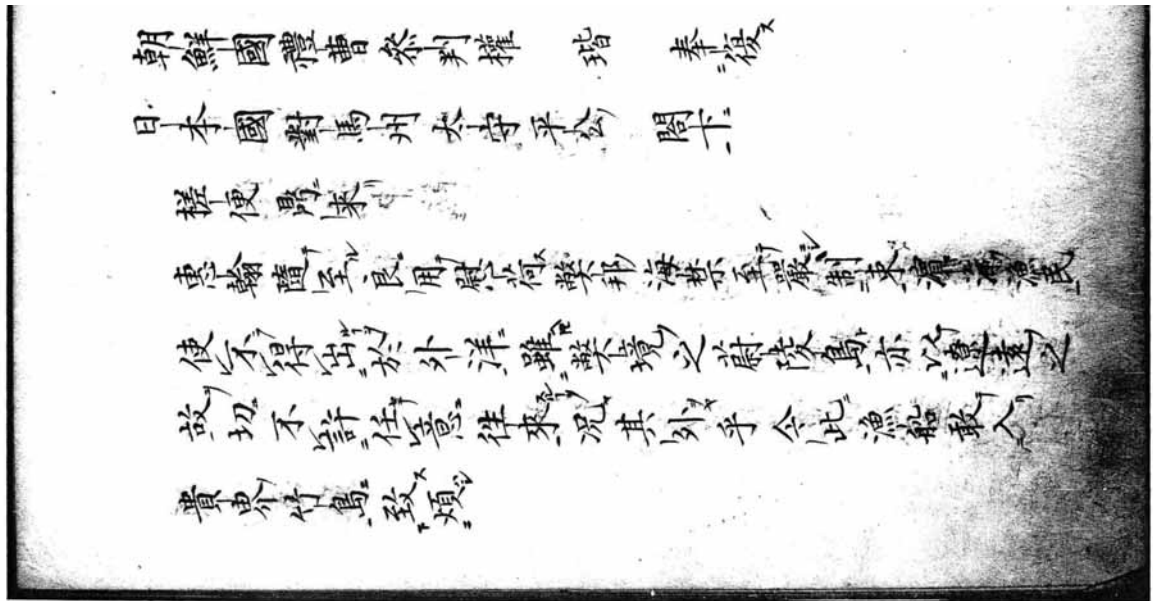 朝鮮國禮曹参判權 瑎 奉復
日本國對馬州太守平公 閤下
槎便鼎来
惠翰隨至良用慰荷弊邦海禁至嚴制束濱海漁民
使不得出於外洋雖弊境之蔚陵島亦以遼遠之
故切不許任意往來況其外乎今此漁船敢入
貴界竹島致煩